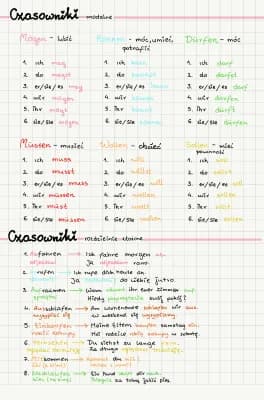 Czasowniki modalne
Mögen - lubić
Können - móc, umieć, potrafić
Dürfen - móc
1. ich mag
2. du magst
3. er/sie/es mag
4. wir mögen
5. ihr mögt
6. sie/Sie mögen
1. ich kann
2. du kannst
3. er/sie/es kann
4. wir können
5. ihr könnt
6. sie/Sie können
1. ich darf
2. du darfst
3. er/sie/es darf
4. wir dürfen
5. ihr dürft
6. sie/Sie dürfen
Müssen - musieć
Wollen - chcieć
Sollen - mieć powinność
1. ich muss
2. du musst
3. er/sie/es muss
4. wir müssen
5. ihr müsst
6. sie/Sie müssen
1. ich will
2. du willst
3. er/sie/es will
4. wir wollen
5. ihr wollt
6. sie/Sie wollen
1. ich soll
2. du sollst
3. er/sie/es soll
4. wir sollen
5. ihr sollt
6. sie/Sie sollen
Czasowniki rozdzielnie złożone
1. Abfahren → Ich fahre morgen ab.
Ja rano.
2. rufen → Ich rufe dich heute an.
Ja do ciebie jutro.
3. Aufräumen → Wann räumt ihr euer Zimmer auf?
Kiedy swój pokój?
4. Ausschlafen → Am Wochenende schlafen wir aus.
W weekend się wysypiamy.
5. Einkaufen → Meine Eltern kaufen samstag ein.
Moi rodzice robią zakupy w sobotę.
6. Fernsehen → Du siehst zu lange fern.
Za długo
7. Mitkommen → Kommst du mit?
8.
Śpię za tobą